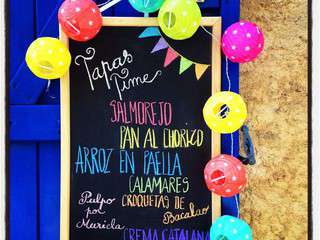 Tapas
Time
SALMOREJO
PAN AL CHORIZO
ARROZ EN PAELLA
CALAMARES
CROQUETAS DE
Bacalao
Pulpo
por
CREMA CATALANA